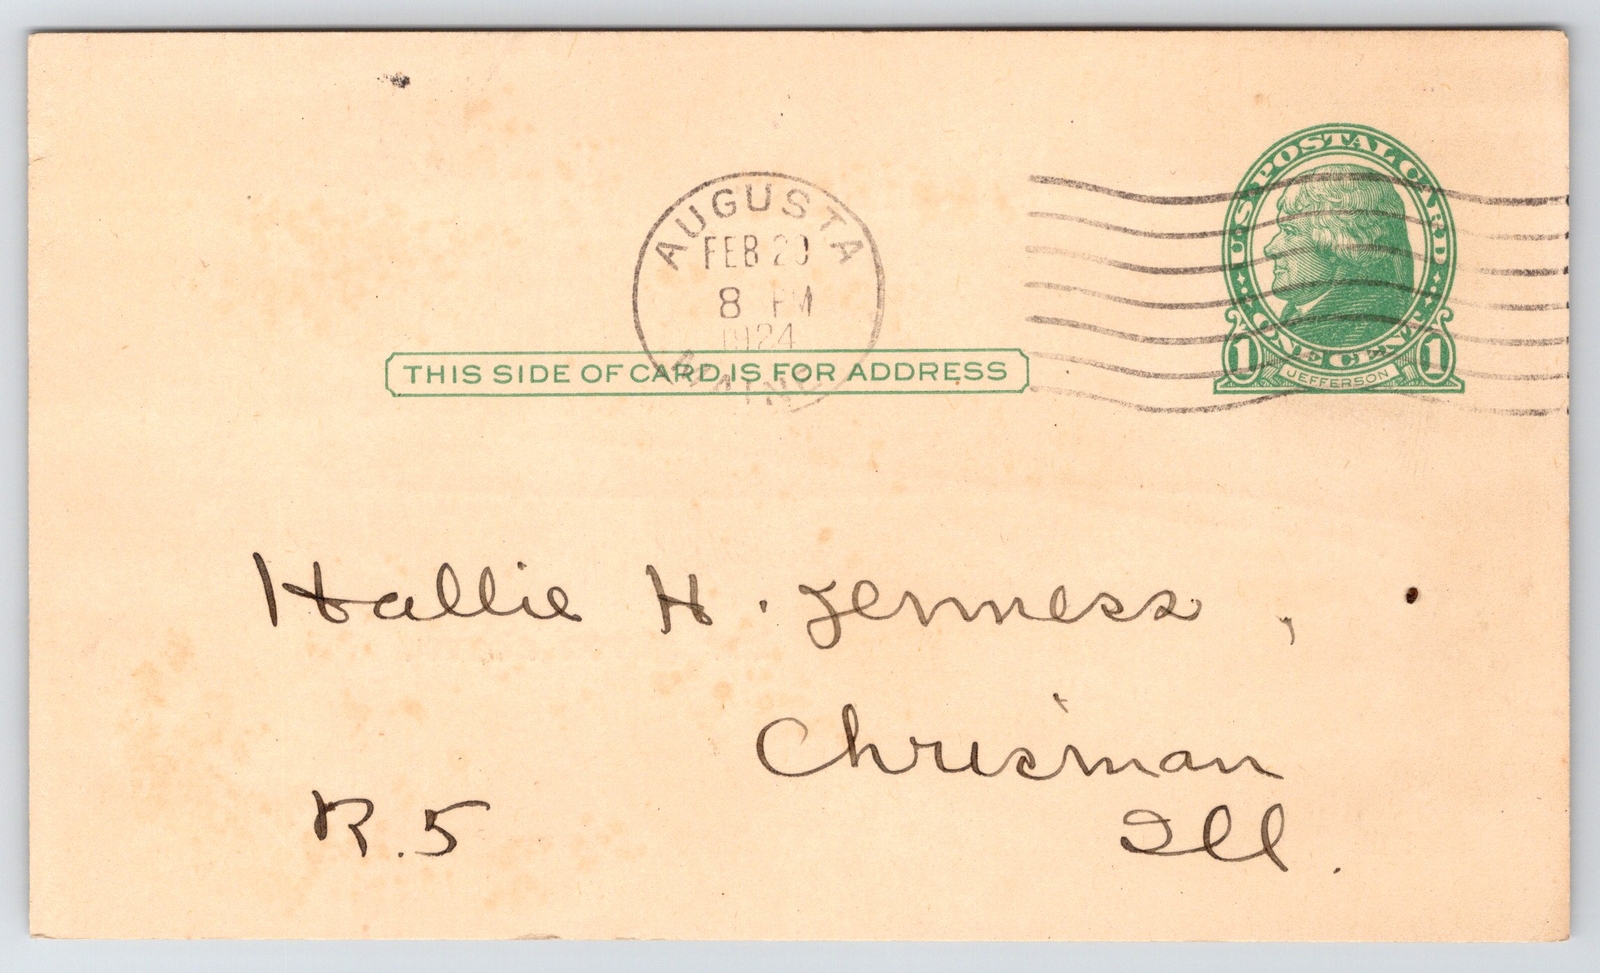 U·S·POSTAL CARD
AUGUSTA
FEB 20
8 PM
1924
MAINE
THIS SIDE OF CARD IS FOR ADDRESS
ONE CENT
1 JEFFERSON 1
Hallie H. Jenness,
Chrisman
R.5 Ill.